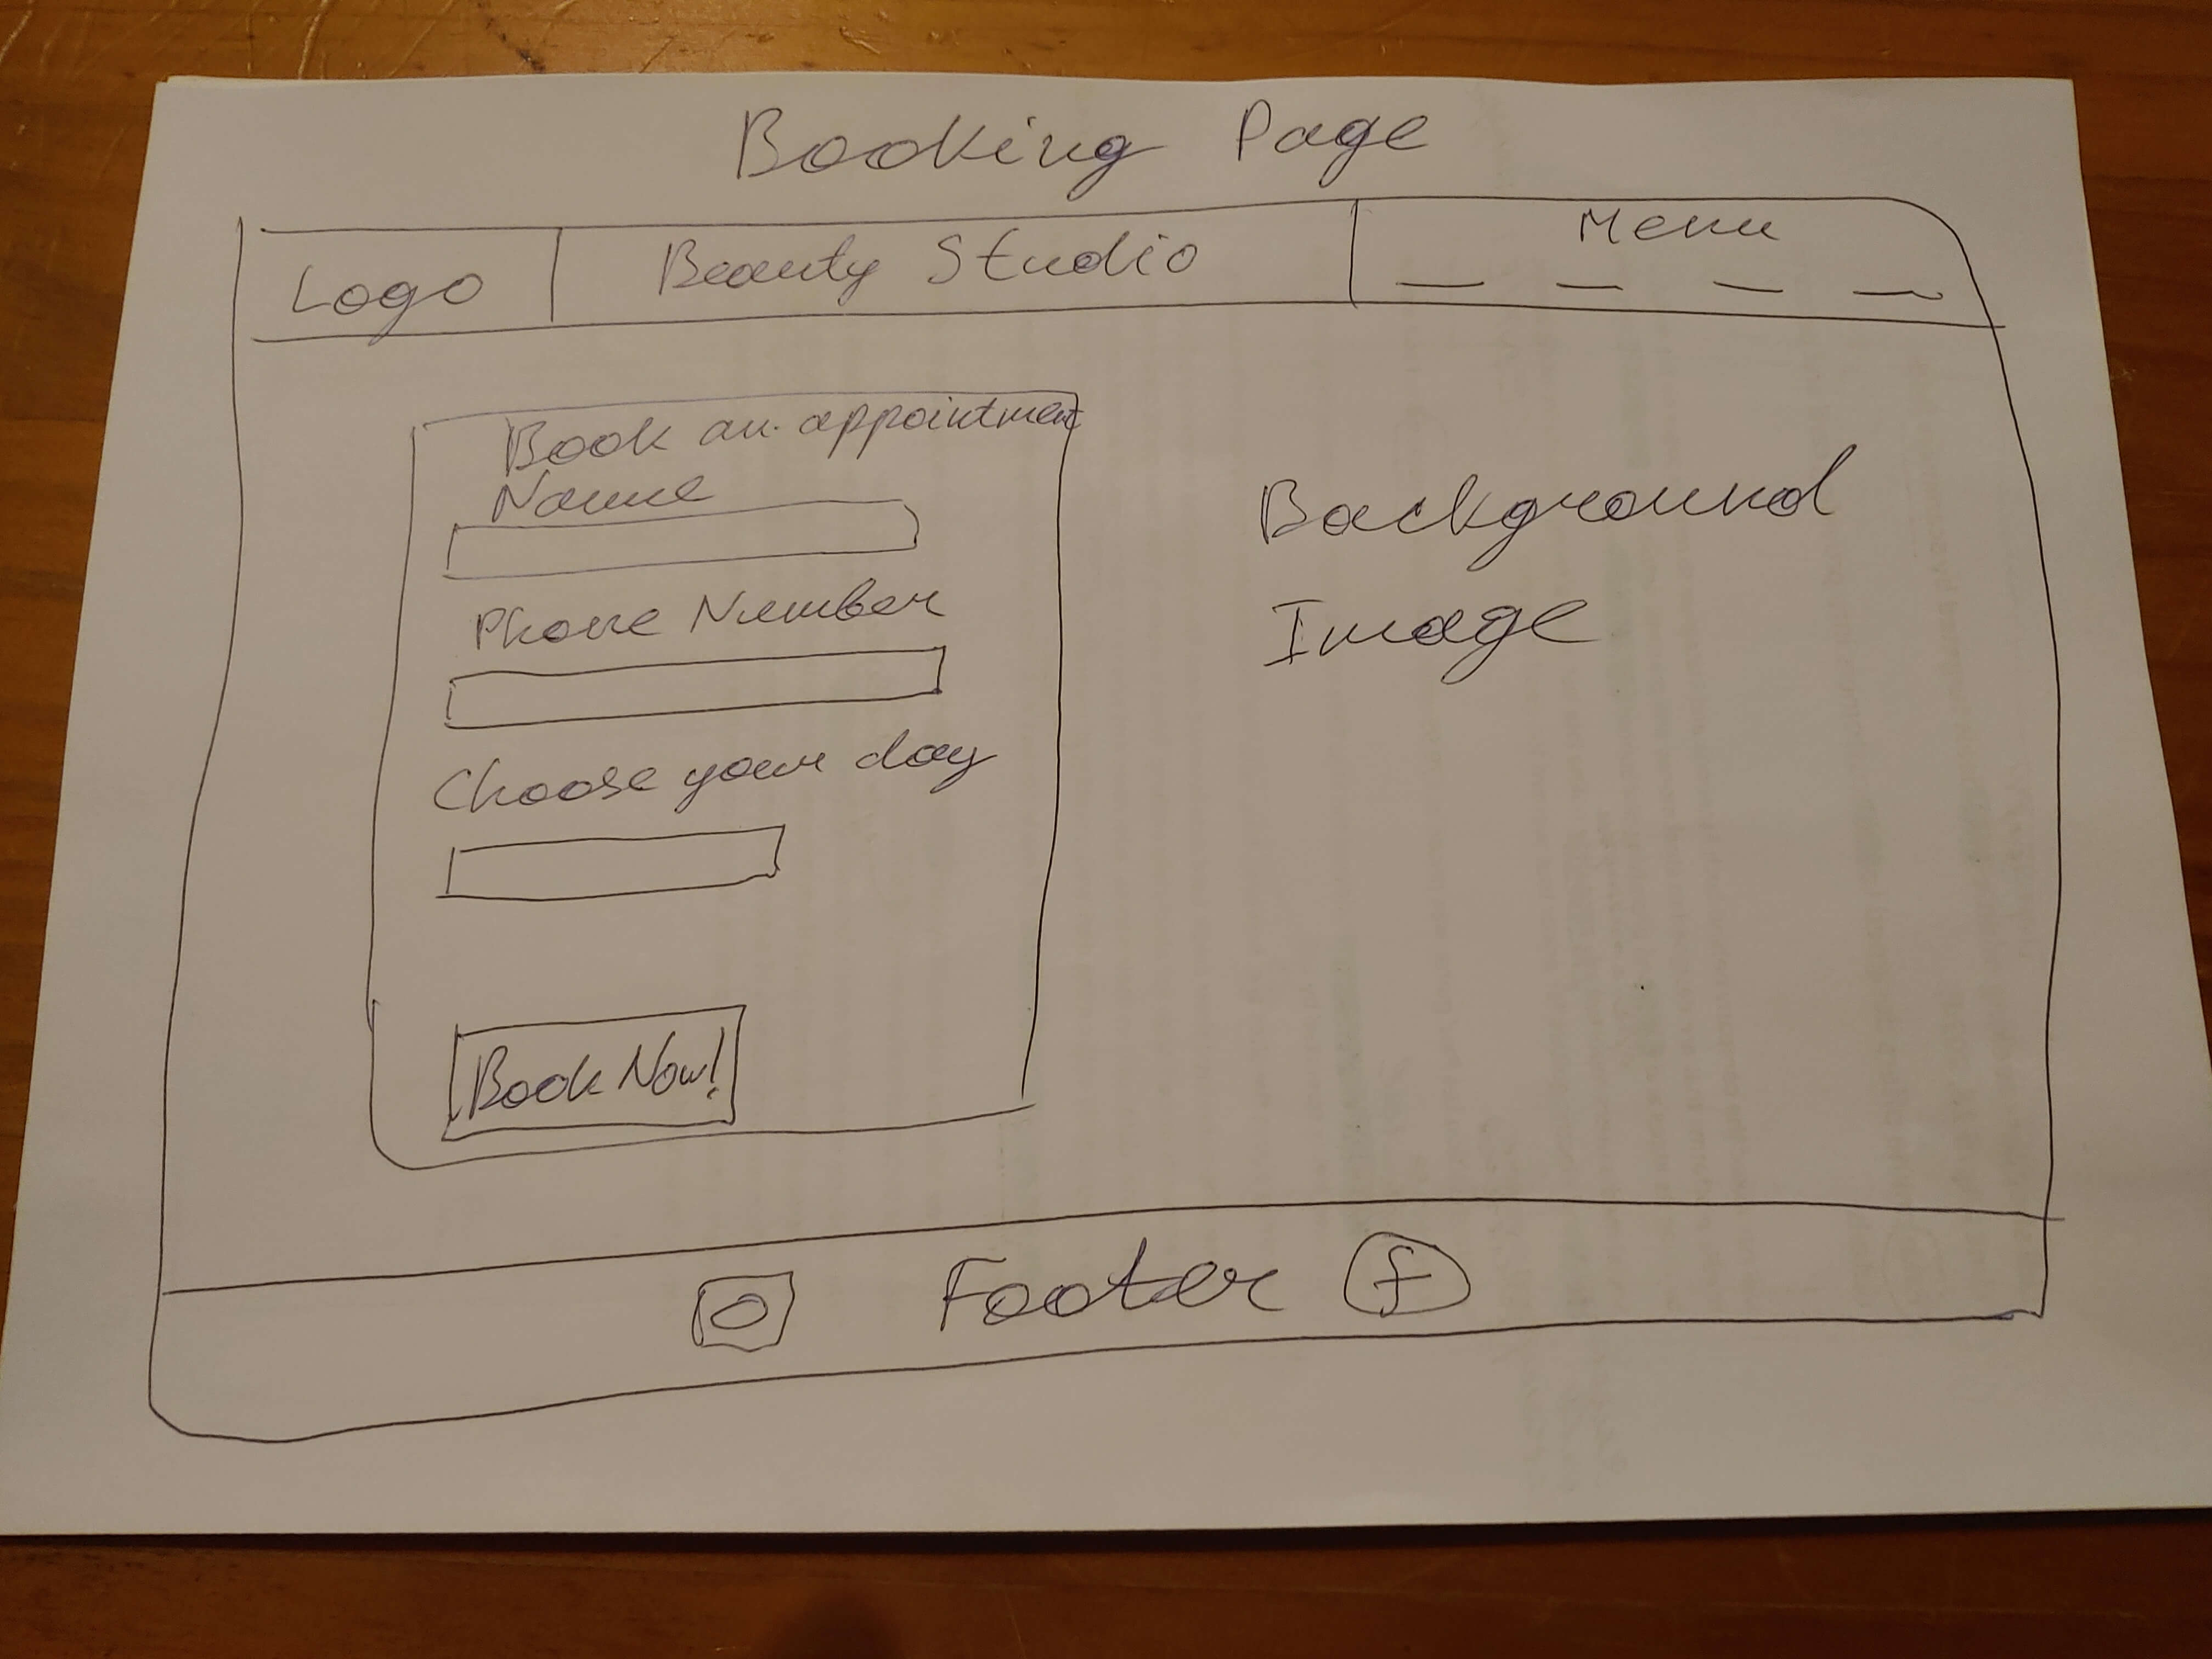 Booking Page
Logo
Beauty Studio
Menu
Book an appointment
Name
Phone Number
Choose your day
Book Now!
Background
Image
Footer
f